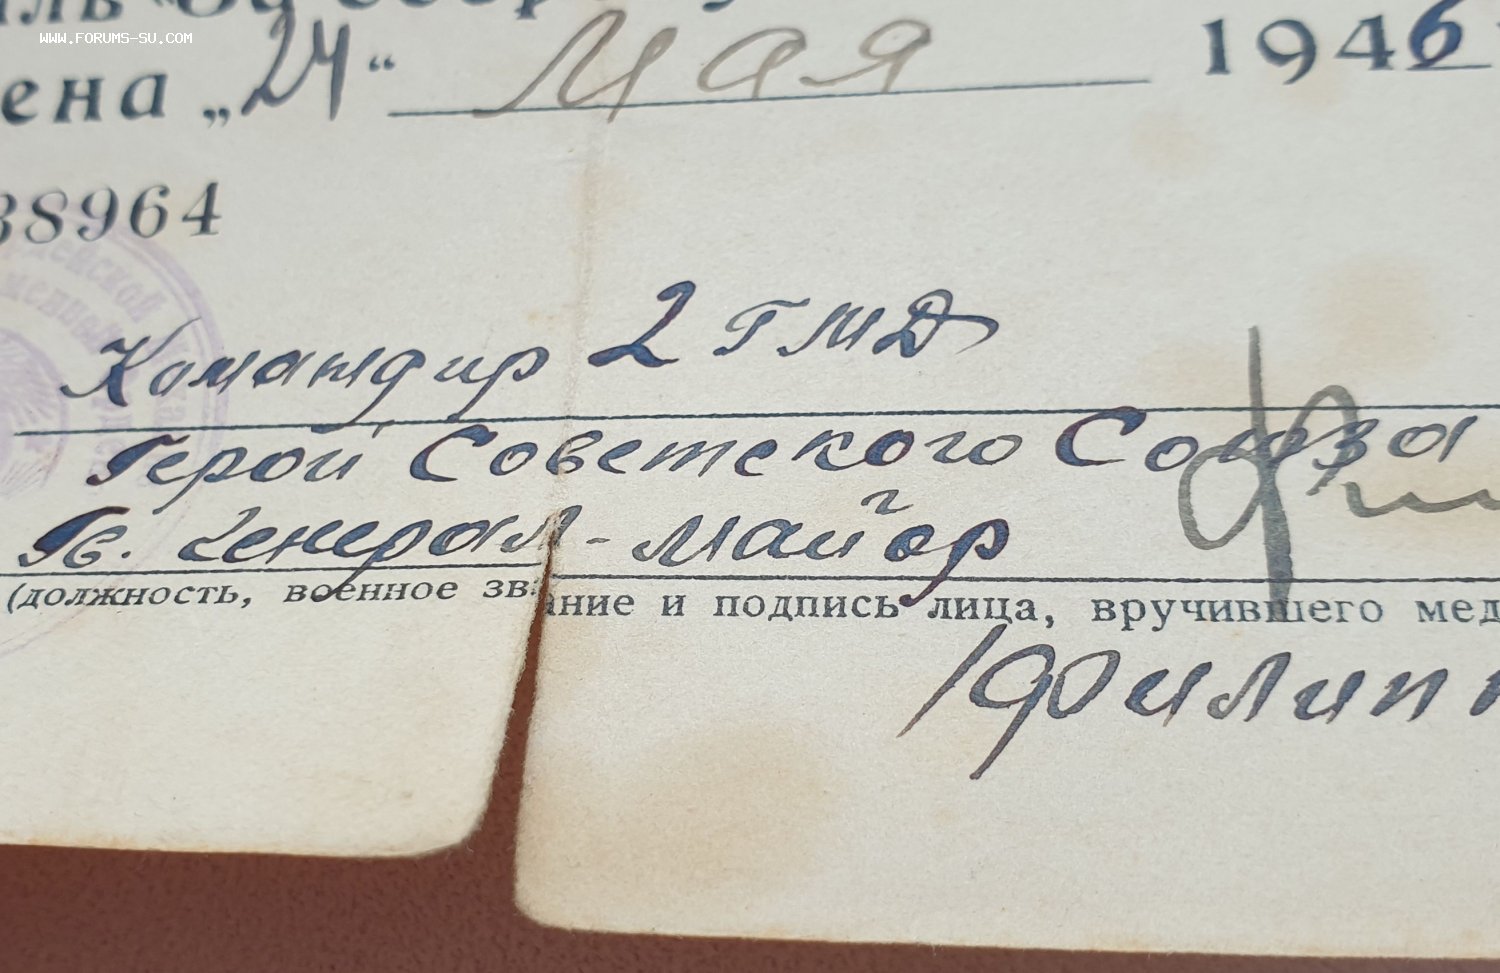 WWW.FORUMS-SU.COM
ена „24“ мая 1946
38964
Командир 2 ГМД
Герой Советского Союза
Гв. генерал-майор
(должность, военное звание и подпись лица, вручившего мед
/Филип